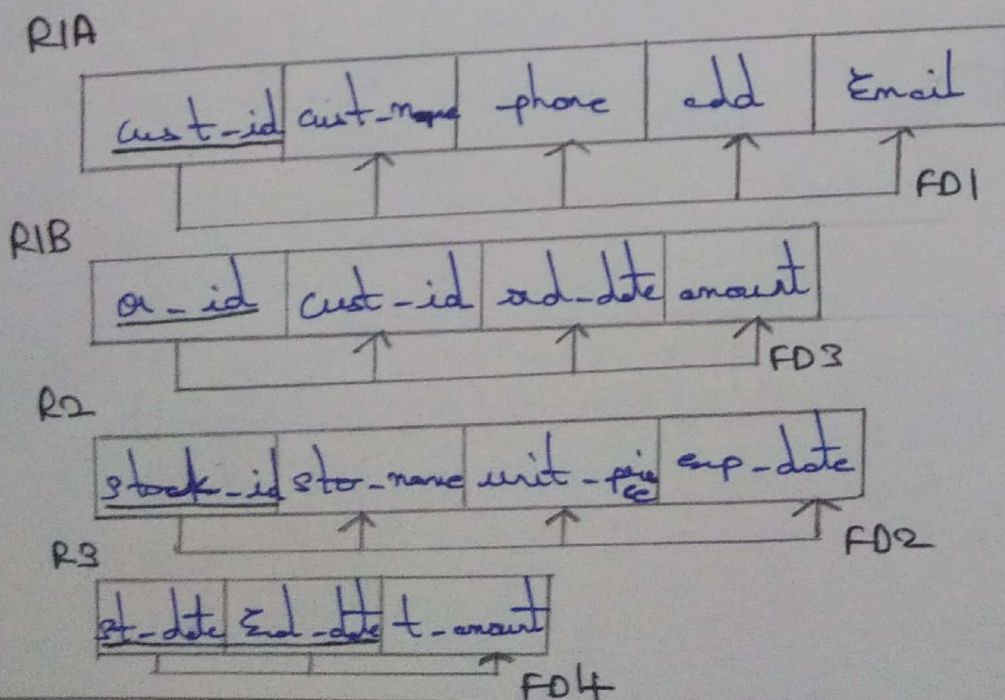 R1A
cust_id cust_name phone add Email
FD1
R1B
or_id cust_id od_date amount
FD3
R2
stock_id sto_name unit_price exp_date
FD2
R3
st_date End_date t_amount
FD4